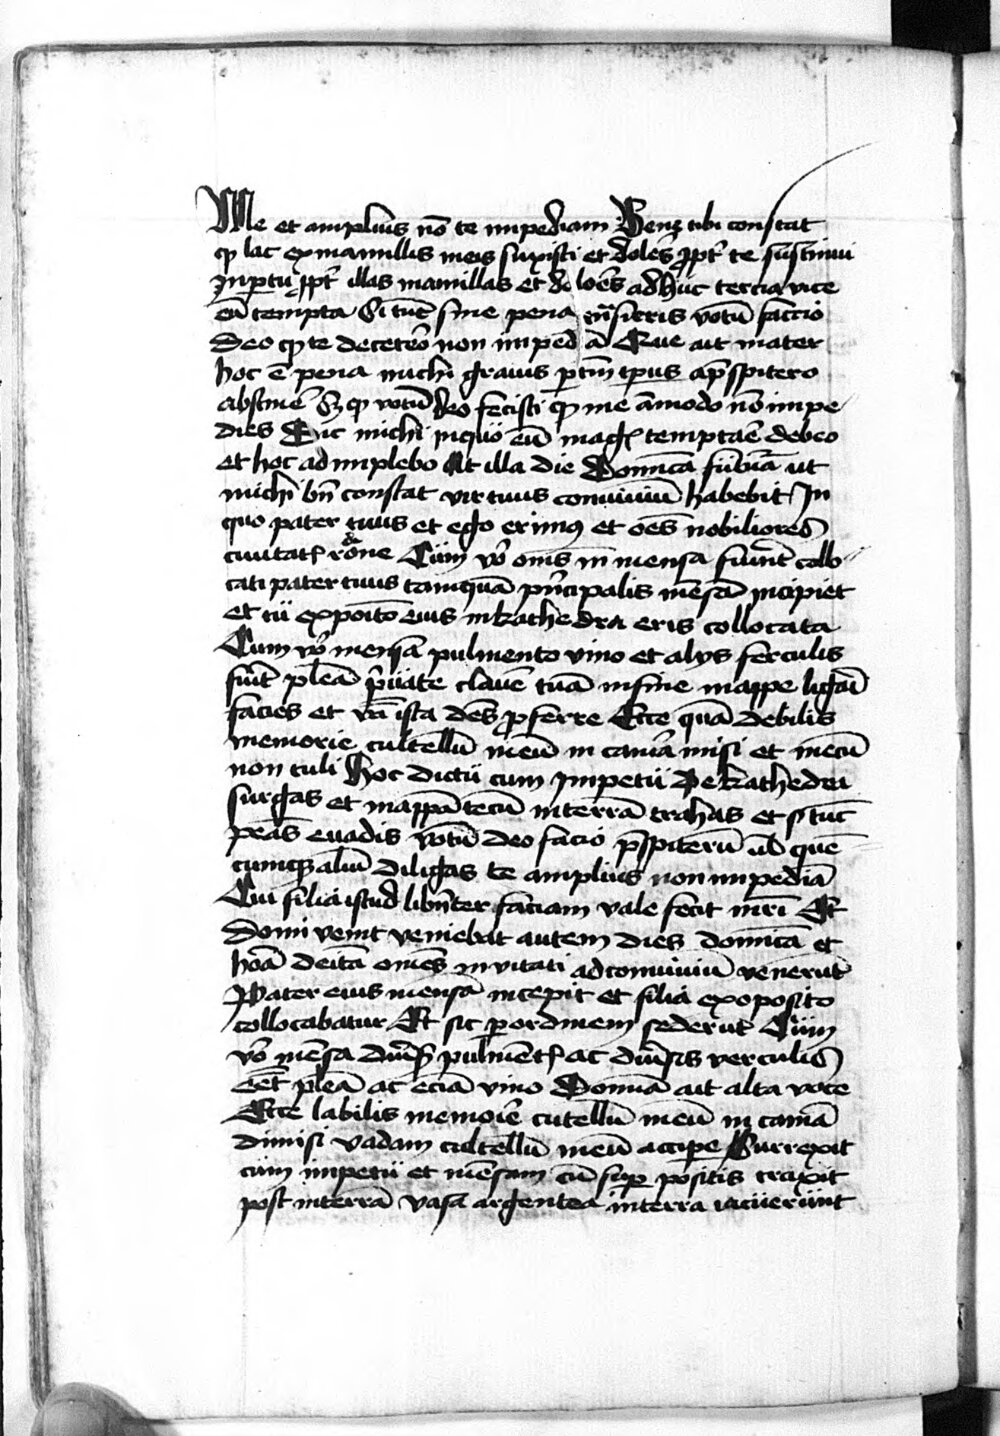 Me et amplius nō te impediam Benꝫ tibi constat
ꝙ lac ex mamillis meis suxisti et dolēs ꝓpt̄ te sustinui
In ꝑtu ꝓpt̄ illas mamillas et do loēs adhuc tercia vice
eū tempta Si tūc sine pena votū faccio
Deo ꝙ te deceteꝛo non imped ā Que ait mater
hoc ē pena michi grauis ꝑ tm̄ tp̄us a p̄spitero
abstinē Sꝫ ꝙ votū deo fecisti ꝙ me āmodo nō impe
dies Dic michi inquo eū magꝭ temptaē debeo
et hoc ad implebo At illa die Domica fūtura ut
michi bn̄ constat vir tuus conuiuiū habebit In
quo pater tuus et ego erimus et oēs nobiliores
ciuitatꝭ rōne Cum vo om̄s in mensa fuuint collo
cati pater tuus tamquā pncipalis mēsā incipiet
et tu exposito eius in kathedra eris collocata
Cum vo mensa pulmento vino et alijs ferculis
fūit plēa p̄uate clauē tuā in fine mappe ligaī
facies et vā ista dēs ꝓferre Ecce quā debilis
memorie cultellū meū in camīa misi et mecū
non tuli Hoc dictu cum impetu de kathedra
surgas et mappā tecū interrā trahas et si tūc
penas euadis votū deo facio p̄spiterū ul quē
cumqꝫ aliū diligas te amplius non impediā
Cui filia istud libn̄ter faciam vale fecit mr̄i Et
domi venit veniebat autem dies domica et
hoā deīta omēs inuitati ad conuiuiū venerūt
Pater eius mensā incepit et filia ex oposito
collocabatur Et sic ꝑ ordinem sederūt Cum
vo mēsa diūsꝭ pulmētꝭ ac diūsis verculis
eēt plēa ac eciā vino Domīa ait alta voce
Ecce labilis memoīe cutellū meū in camīa
dimisi vadam cultellū meū accipe Surrexit
cum impetu et mēsam cū suꝑ positis traxit
post interrā vasa argentea interra iacuerunt